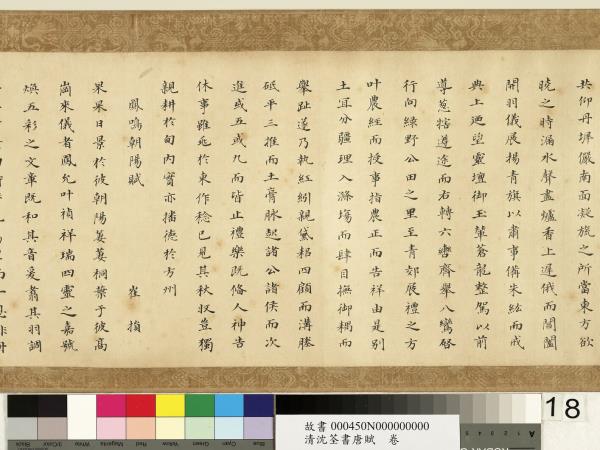 共仰丹墀儼南面凝旒之所當東方欲
曉之時漏水聲盡爐香上遲俄而閶闔
開羽儀展揚青旗以肅事備朱絃而戒
典上迺望靈壇御玉輦蒼龍整駕以前
導蔥犗遵途而右轉六轡齊舉八鸞啓
行向綠野公田之里至青郊展禮之方
叶農經而授事指農正而告祥由是別
土宜分疆理入滌場而肆目撫御耦而
舉趾遂乃執紅紖親黛耜四顧而溝塍
砥平三推而土膏脉起諸公諸侯而次
進或五或九而皆止禮樂既脩人神告
休事雖兆於東作稔已見其秋収豈獨
親耕於甸內實亦播德於方州
鳳鳴朝陽賦
崔損
果果日景於彼朝陽萋萋桐葉于彼高
崗來儀者鳳允叶禎祥瑞四靈之嘉號
煥五彩之文章既和其音爰翥其羽調
18
故書 000450N000000000
清沈荃書唐賦 卷
Black
3/Color
White
Magenta
Red
Yellow
Green
Cyan
Blue
A